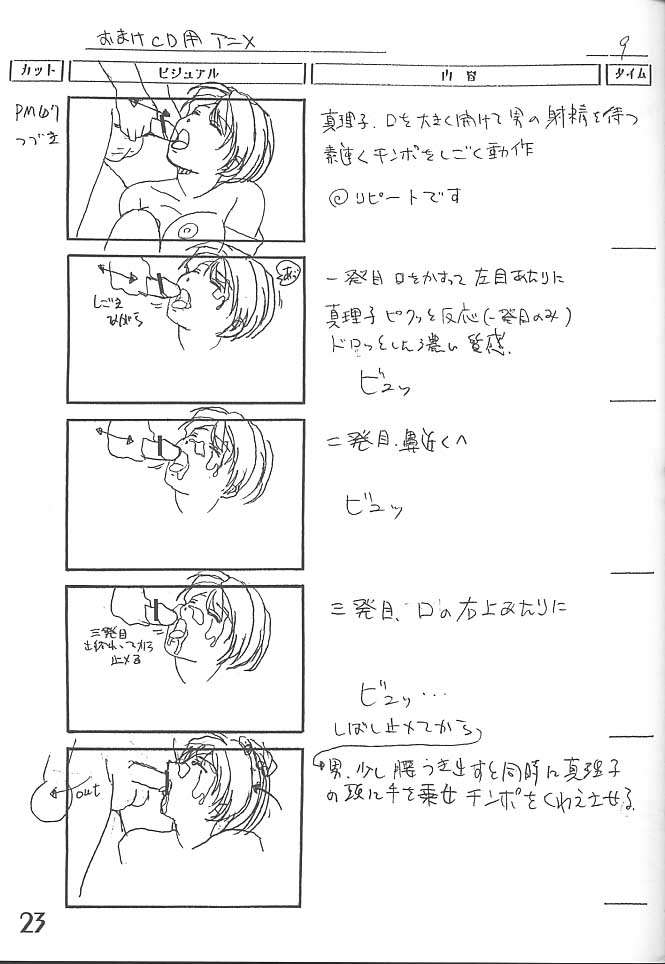 おまけCD用 アニメ
9
カット
ビジュアル
内容
タイム
PM67
つづき
真理子、口を大きく開けて男の射精を待つ
素速くチンポをしごく動作
◎リピートです
しごき
ながら
あっ
一発目 口をかすって左目あたりに
真理子ピクッと反応(一発目のみ)
ドロッとした濃い質感.
ビュッ
二発目、鼻近くへ
ビュッ
三発目
止メる
三発目、口の右上あたりに
ビュッ・・・
しばし止メてから
out
男、少し腰つき出すと同時に真理子
の頭に手を乗せチンポをくわえさせる.
23